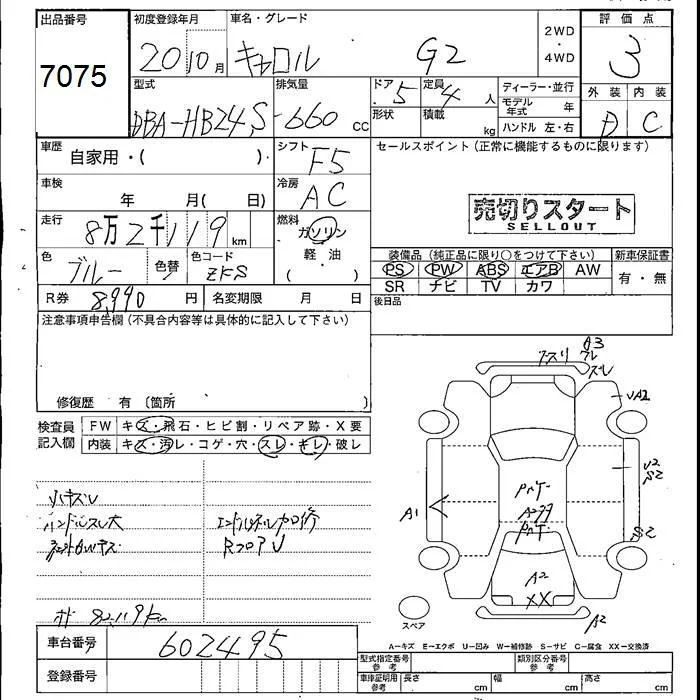 出品番号
7075
初度登録年月
20 10月
車名・グレード
キャロル G2
2WD
・
4WD
評価点
3
型式
DBA-HB24S
排気量
660 cc
ドア 5
定員 4人
形状
積載 kg
ディーラー・並行
モデル年式 年
ハンドル 左・右
外装 内装
D C
車歴
自家用・( )
シフト F5
セールスポイント (正常に機能するものに限ります)
車検
年 月( 日)
冷房 AC
売切りスタート
SELLOUT
走行
8万2千119km
燃料
ガソリン
軽・油
( )
色 ブルー
色替
色コード ZKS
装備品 (純正品に限り○をつけて下さい)
新車保証書
PS PW ABS エアB AW
SR ナビ TV カワ
有・無
R券 8,990円
名変期限 月 日
後日品
注意事項申告欄 (不具合内容等は具体的に記入して下さい)
修復歴 有 〔箇所 〕
検査員記入欄
FW キズ・飛石・ヒビ割・リペア跡・X要
内装 キズ・汚レ・コゲ・穴・スレ・キレ・破レ
ハンドルスレ大
RフロアU
A3
スレ
UA2
U2
S2
A1
S2
A2
XX
A2
スペア
A=キズ E=エクボ U=凹み W=補修跡 S=サビ C=腐食 XX=交換済
車台番号 602495
登録番号
型式指定番号 参考
類別区分番号 参考
車庫証明用 参考
長さ cm
幅 cm
高さ cm